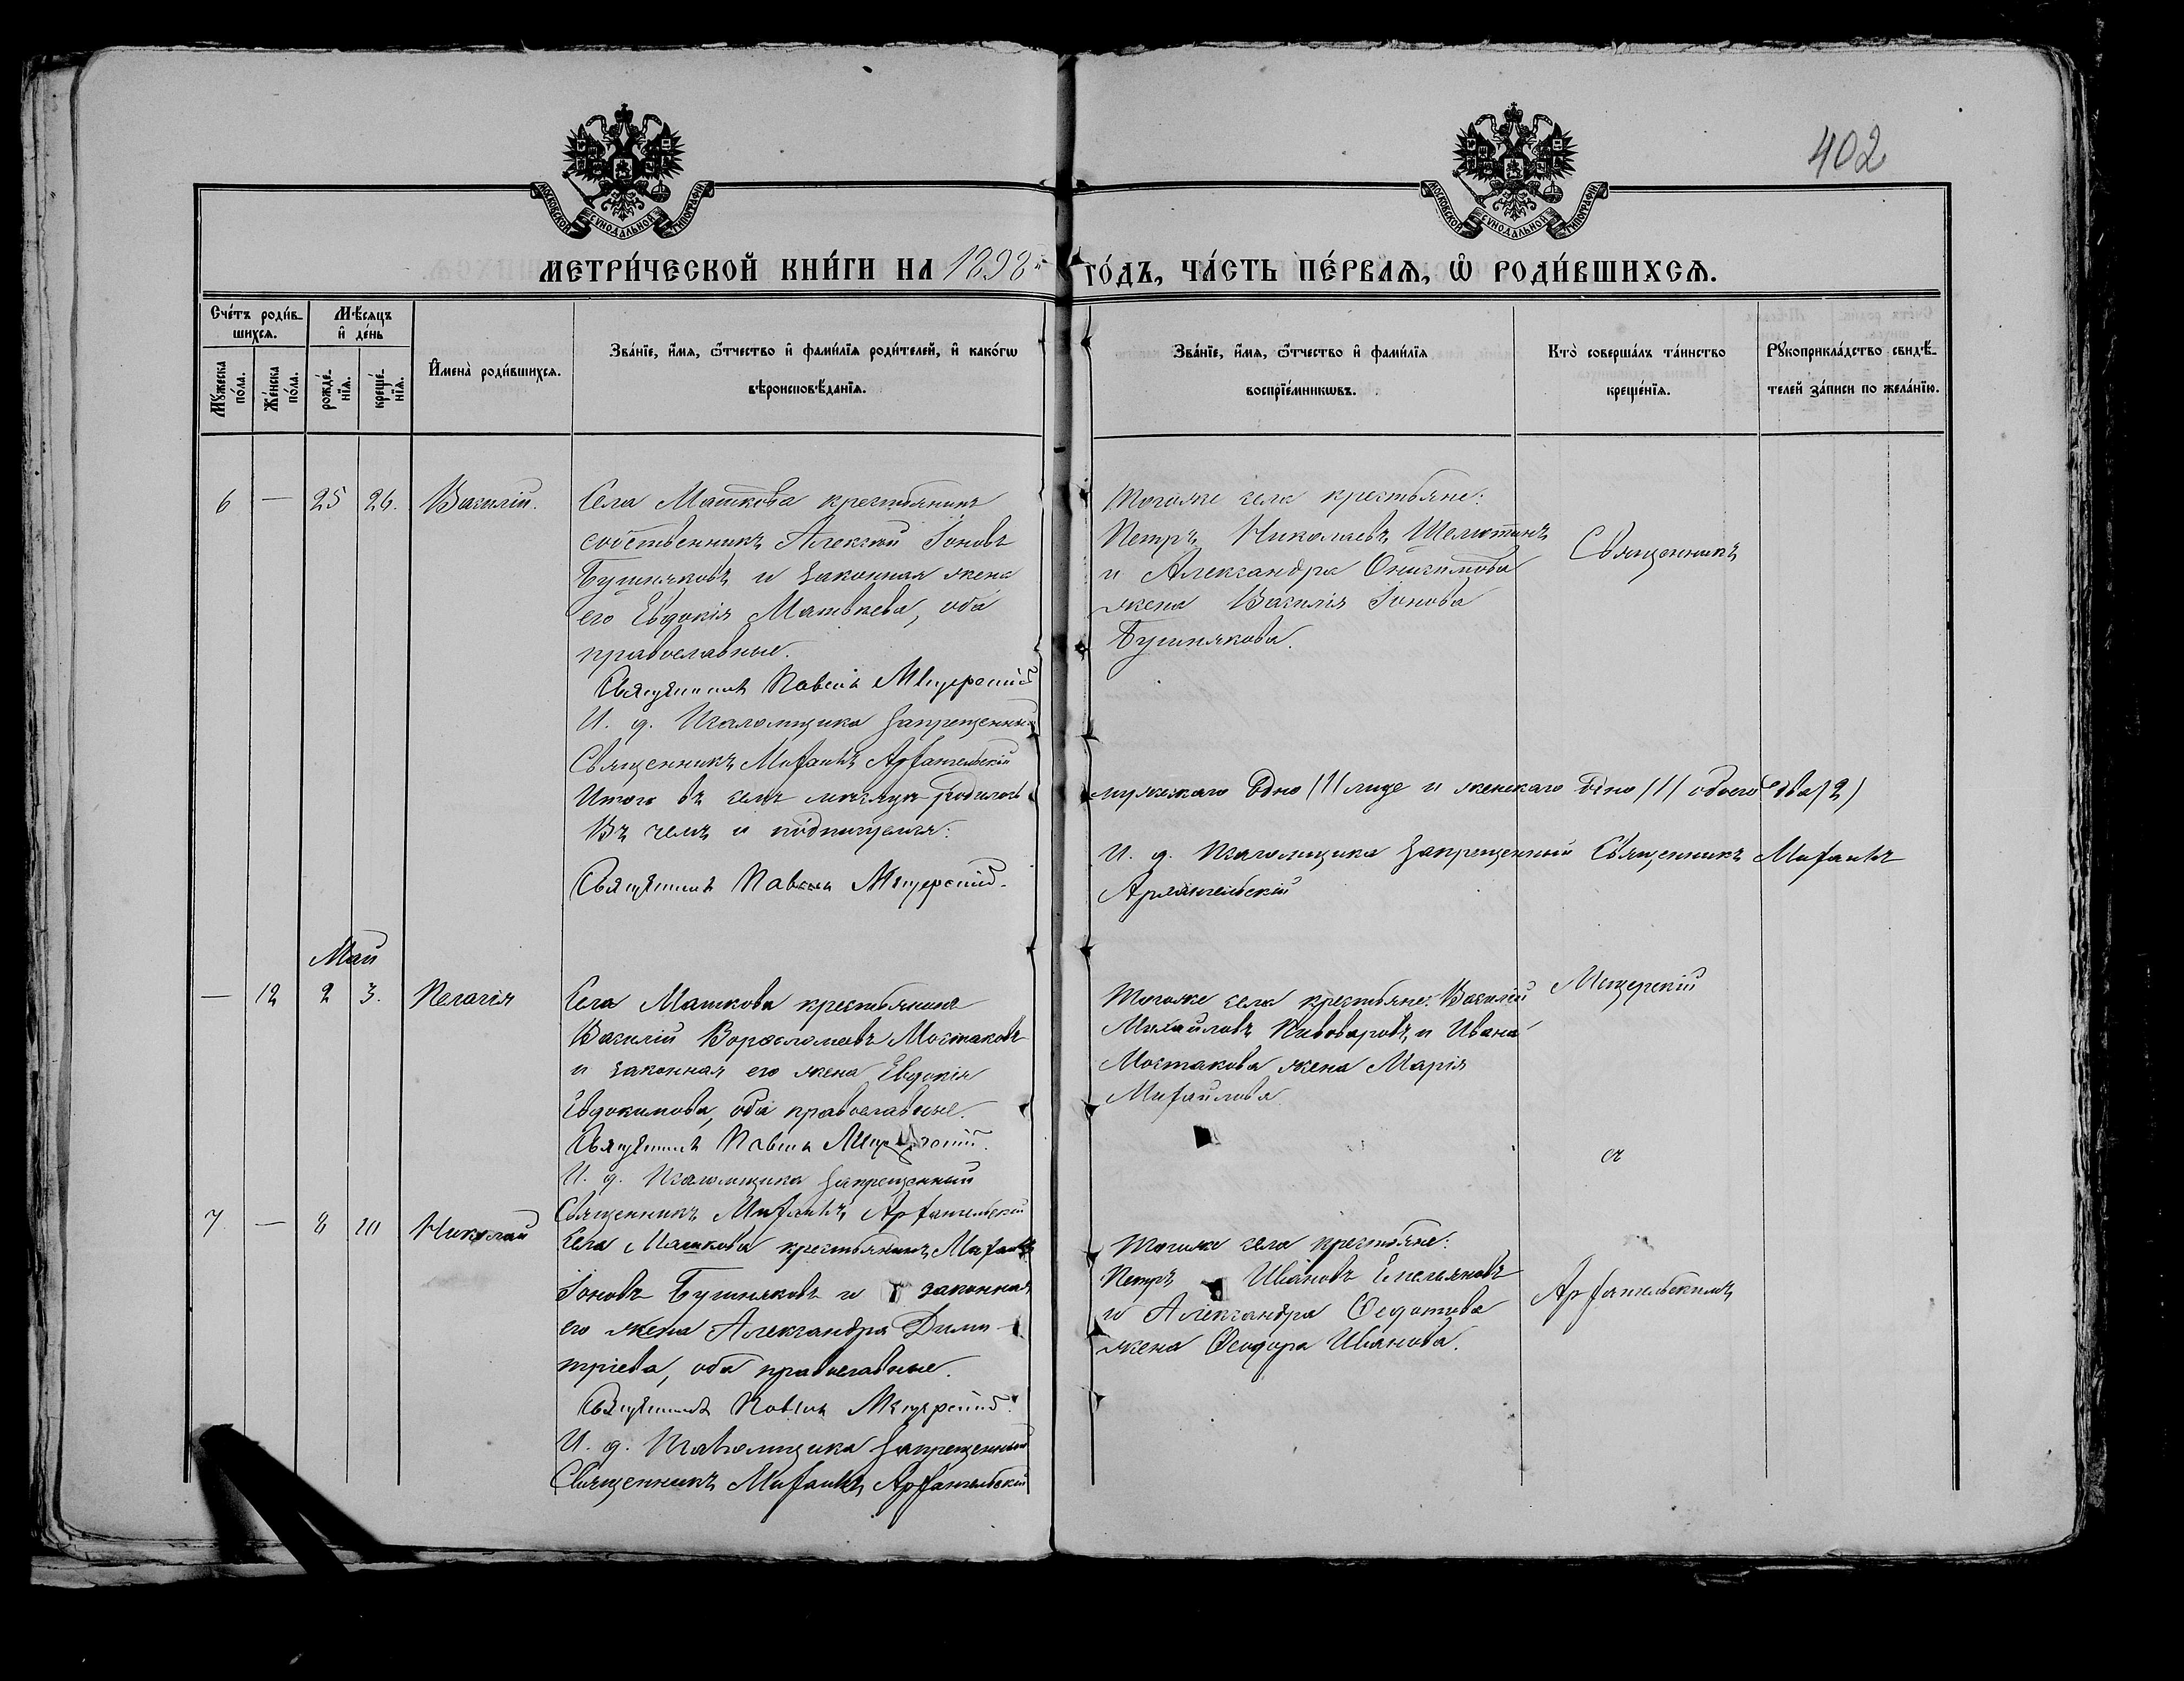 402
МОСКОВСКОЙ СУНОДАЛЬНОЙ ТИПОГРАФІИ
МОСКОВСКОЙ СУНОДАЛЬНОЙ ТИПОГРАФІИ
МЕТРИ́ЧЕСКОЙ КНИ́ГИ НА 1898 ГО́ДЪ, ЧА́СТЬ ПЕ́РВАѦ, Ѡ҆ РОДИ́ВШИХСѦ.
Сче́тъ роди́в-
шихсѧ.
Мꙋжеска по́ла.
Же́нска по́ла.
Мѣ́сѧцъ
и҆ де́нь
рожде́-нїѧ.
креще́-нїѧ.
И҆мена̀ роди́вшихсѧ.
Зва́нїе, и҆́мѧ, ѻ҆́тчество и҆ фами́лїѧ роди́телей, и҆ како́гѡ
вѣроисповѣ́данїѧ.
Зва́нїе, и҆́мѧ, ѻ҆́тчество и҆ фами́лїѧ
воспрїе́мникѡвъ.
Кто̀ соверша́лъ та́инство
креще́нїѧ.
Рꙋкоприкла́дство свидѣ́-
телей за́писи по жела́нїю.
6 — 25 26. Василій.
Села Машкова крестьянинъ
собственникъ Алексѣй Іоновъ
Бушняковъ и законная жена
его Евдокія Матвѣева, оба
православные.
Священникъ Павелъ Мещерскій
И. д. Псаломщика запрещенный
Священникъ Михаилъ Архангельскій
Тогоже села крестьяне:
Петръ Николаевъ Шелютинъ
и Александра Онисимова
жена Василія Іонова
Бушнякова.
Священникъ
Итого въ семъ мѣсяцѣ родилось мужескаго одно (1) лице и женскаго одно (1) обоего два (2)
Въ чемъ и подписуемся:
Священникъ Павелъ Мещерскій.
И. д. Псаломщика запрещенный Священникъ Михаилъ
Архангельскій
Май
— 12 2 3. Пелагія
Села Машкова крестьянинъ
Василій Ворѳоломеевъ Мостаковъ
и законная его жена Евдокія
Евдокимова, оба православные.
Священникъ Павелъ Мещерскій.
И. д. Псаломщика запрещенный
Священникъ Михаилъ Архангельскій
Тогоже села крестьяне: Василій
Михайловъ Пивоваровъ и Ивана
Мостакова жена Марія
Михайлова
Мещерскій
съ
7 — 8 10 Николай
Села Машкова крестьянинъ Михаилъ
Іоновъ Бушняковъ и законная
его жена Александра Дими-
тріева, оба православные.
Священникъ Павелъ Мещерскій.
И. д. Псаломщика запрещенный
Священникъ Михаилъ Архангельскій
Тогоже села крестьяне:
Петръ Ивановъ Емельяновъ
и Александра Ѳедотова
жена Ѳеодора Иванова.
Архангельскимъ